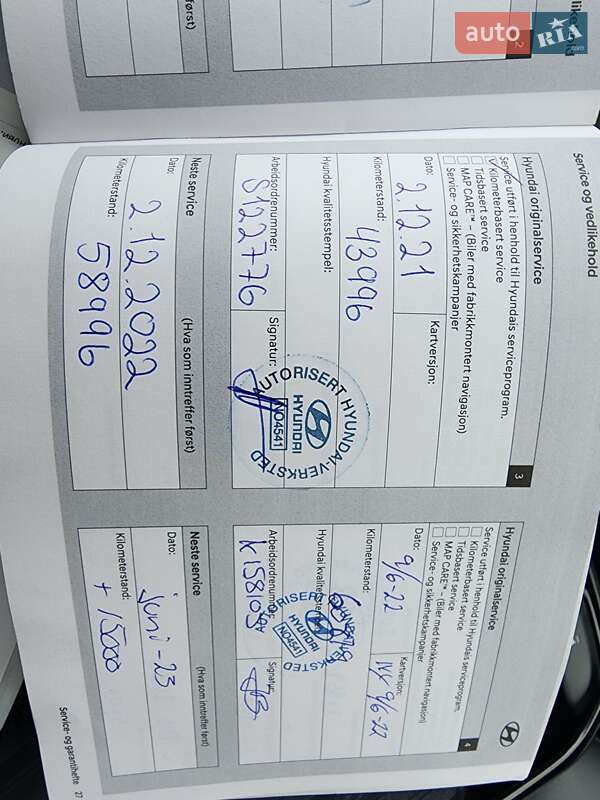 auto RIA.com
2
først)
Service og vedlikehold
Hyundai originalservice
3
Service utført i henhold til Hyundais serviceprogram.
Kilometerbasert service
Tidsbasert service
MAP CARE™ – (Biler med fabrikkmontert navigasjon)
Service- og sikkerhetskampanjer
Dato:
2.12.21
Kartversjon:
Kilometerstand:
43996
Hyundai kvalitetsstempel:
AUTORISERT HYUNDAI-VERKSTED
HYUNDAI
NO4541
Arbeidsordrenummer:
S122776
Signatur:
Neste service
(Hva som inntreffer først)
Dato:
2.12.2022
Kilometerstand:
58996
Hyundai originalservice
4
Service utført i henhold til Hyundais serviceprogram.
Kilometerbasert service
Tidsbasert service
MAP CARE™ – (Biler med fabrikkmontert navigasjon)
Service- og sikkerhetskampanjer
Dato:
9/6-22
Kartversjon:
9/6-22
Kilometerstand:
Hyundai
HYUNDAI
NO4541
Arbeidsordrenummer:
K158105
Signatur:
Neste service
(Hva som inntreffer først)
Dato:
juni-23
Kilometerstand:
+ 15000
Service- og garantihefte 27